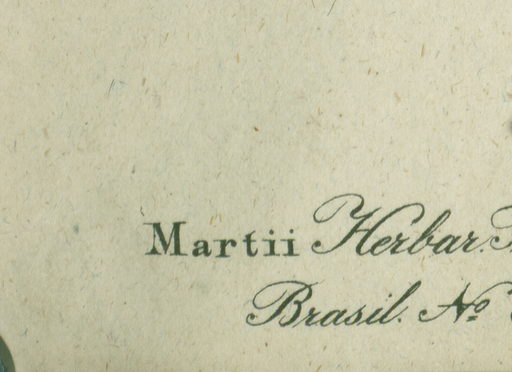 Martii Herbar.
Brasil. No